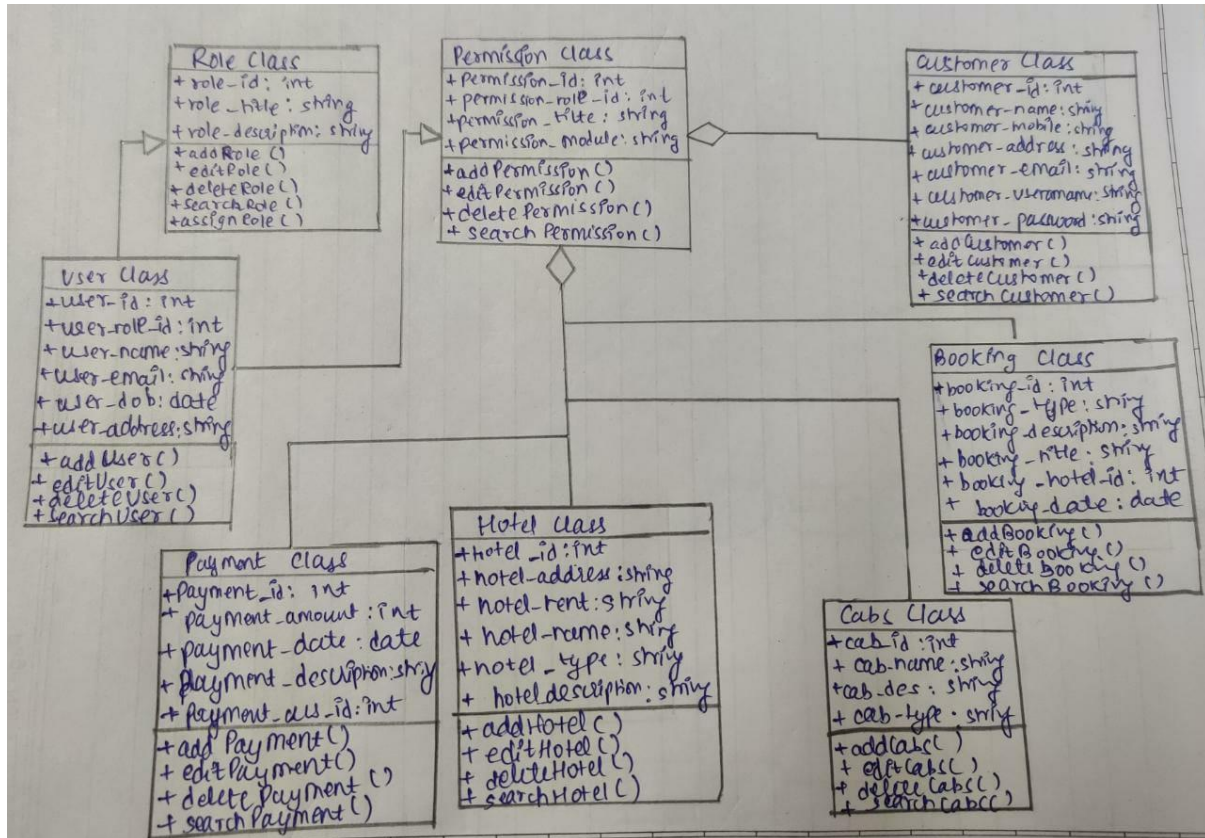 Role Class
+ role_id: int
+ role_title: string
+ role_description: string
+ addRole ()
+ editRole ()
+ deleteRole ()
+ searchRole ()
+ assignRole ()
Permission Class
+ Permission_id: int
+ permission_role_id: int
+ permission_title: string
+ permission_module: string
+ addPermission ()
+ editPermission ()
+ deletePermission ()
+ searchPermission ()
Customer Class
+ customer_id: int
+ customer_name: string
+ customer_mobile: string
+ customer_address: string
+ customer_email: string
+ customer_username: string
+ customer_password: string
+ addCustomer ()
+ editCustomer ()
+ deleteCustomer ()
+ searchCustomer ()
User Class
+ user_id: int
+ user_role_id: int
+ user_name: string
+ user_email: string
+ user_dob: date
+ user_address: string
+ addUser ()
+ editUser ()
+ deleteUser ()
+ searchUser ()
Booking Class
+ booking_id: int
+ booking_type: string
+ booking_description: string
+ booking_title: string
+ booking_hotel_id: int
+ booking_date: date
+ addBooking ()
+ editBooking ()
+ deleteBooking ()
+ searchBooking ()
Payment Class
+ Payment_id: int
+ payment_amount: int
+ payment_date: date
+ payment_description: string
+ payment_cus_id: int
+ add Payment ()
+ editPayment ()
+ deletePayment ()
+ searchPayment ()
Hotel Class
+ hotel_id: int
+ hotel_address: string
+ hotel_rent: string
+ hotel_name: string
+ hotel_type: string
+ hotel description: string
+ addHotel ()
+ editHotel ()
+ deleteHotel ()
+ searchHotel ()
Cabs Class
+ cab_id: int
+ cab_name: string
+ cab_des: string
+ cab_type: string
+ addCabs( )
+ editCabs( )
+ deleteCabs( )
+ searchCabs( )